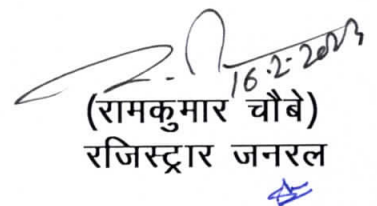 16.2.2023
(रामकुमार चौबे)
रजिस्ट्रार जनरल